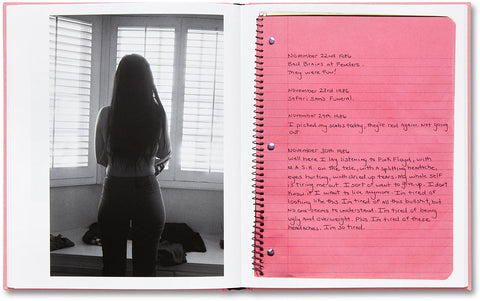 November 22nd 1986
Bad Brains at Fenders.
They were fun!
November 23rd 1986
Safari Sams Funeral.
November 29th 1986
I picked my scabs today, they're red again. Not going
out.
November 30th 1986
Well here I lay listening to Pink Floyd, with
M.A.S.H. on the tele, with a splitting headache,
eyes hurting, with dried up tears. My whole self
is tiring me out. I sort of want to give up. I don't
know if I want to live anymore. I'm tired of
looking like this I'm tired of all this bullshit, but
no one seems to understand. I'm tired of being
ugly and overweight. Plus I'm tired of these
headaches. I'm so tired.